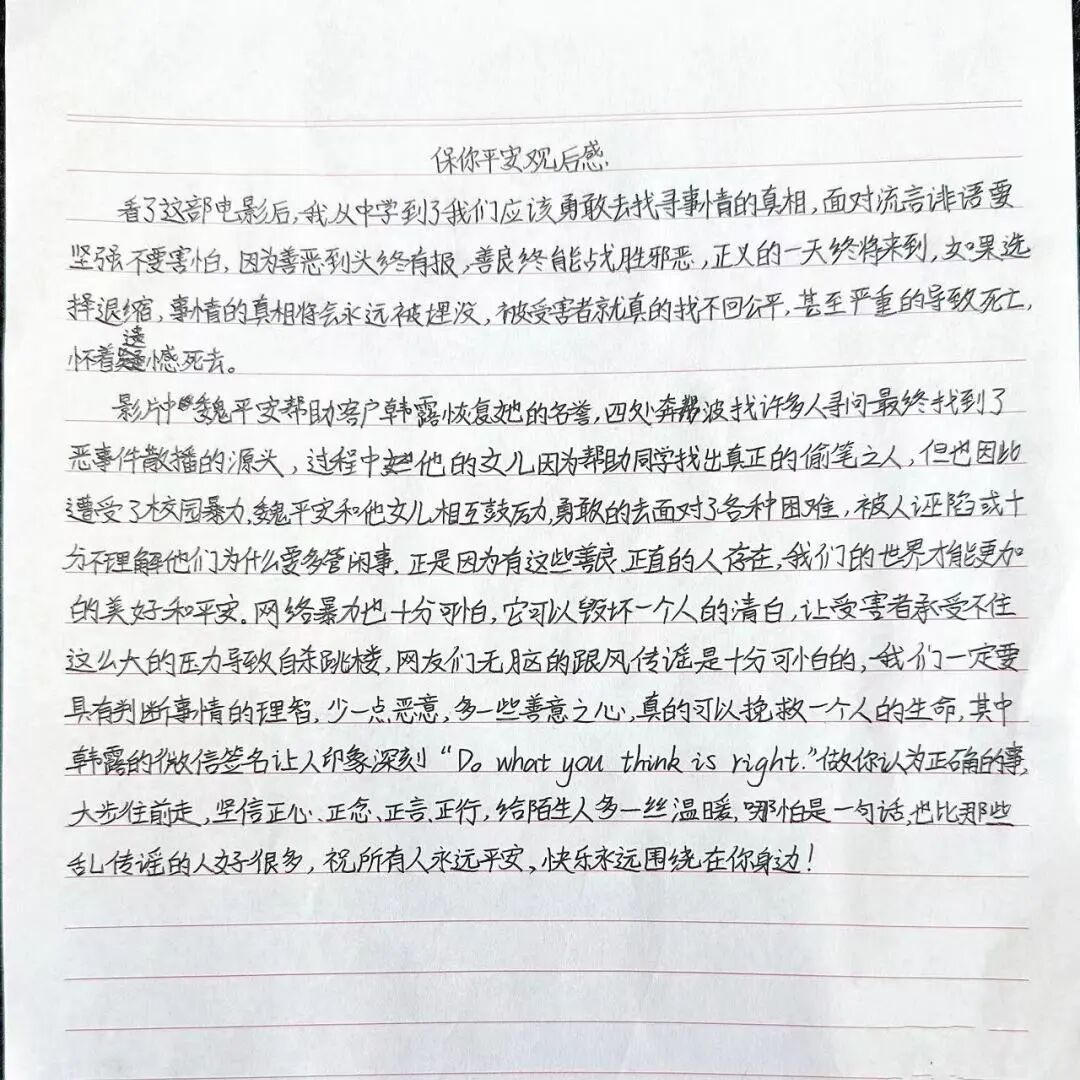 保你平安观后感
看了这部电影后,我从中学到了我们应该勇敢去找寻事情的真相,面对流言诽语要
坚强不要害怕,因为善恶到头终有报,善良终能战胜邪恶,正义的一天终将来到,如果选
择退缩,事情的真相将会永远被埋没,被受害者就真的找不回公平,甚至严重的导致死亡,
怀着遗憾死去。
影片中魏平安帮助客户韩露恢复她的名誉,四处奔波找许多人寻问最终找到了
恶事件散播的源头,过程中他的女儿因为帮助同学找出真正的偷笔之人,但也因此
遭受了校园暴力,魏平安和他女儿相互鼓励,勇敢的去面对了各种困难,被人诬陷或十
分不理解他们为什么要多管闲事,正是因为有这些善良、正直的人存在,我们的世界才能更加
的美好和平安。网络暴力也十分可怕,它可以毁坏一个人的清白,让受害者承受不住
这么大的压力导致自杀跳楼,网友们无脑的跟风传谣是十分可怕的,我们一定要
具有判断事情的理智,少一点恶意,多一些善意之心,真的可以挽救一个人的生命,其中
韩露的微信签名让人印象深刻“Do what you think is right.”做你认为正确的事,
大步往前走,坚信正心、正念、正言、正行,给陌生人多一丝温暖,哪怕是一句话,也比那些
乱传谣的人好很多,祝所有人永远平安,快乐永远围绕在你身边!